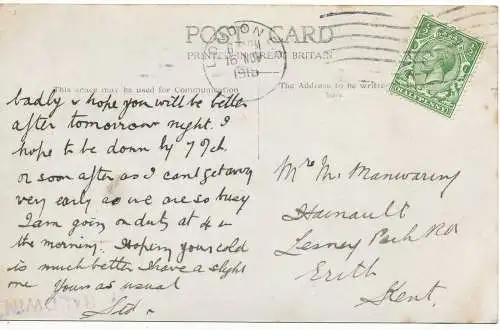 POST CARD
PRINTED IN GREAT BRITAIN
LONDON
16 NOV
1915
This space may be used for Communication
The Address to be written
here.
HALFPENNY
badly & hope you will be better
after tomorrow night. I
hope to be down by 7 o/ck.
or soon after as I can't get away
very early as we are so busy
I am going on duty at 4 in
the morning. Hoping your cold
is much better I have a slight
one Yours as usual
Sid.
Mrs M. Manwaring
Hainault
Lesney Park Rd
Erith
Kent.